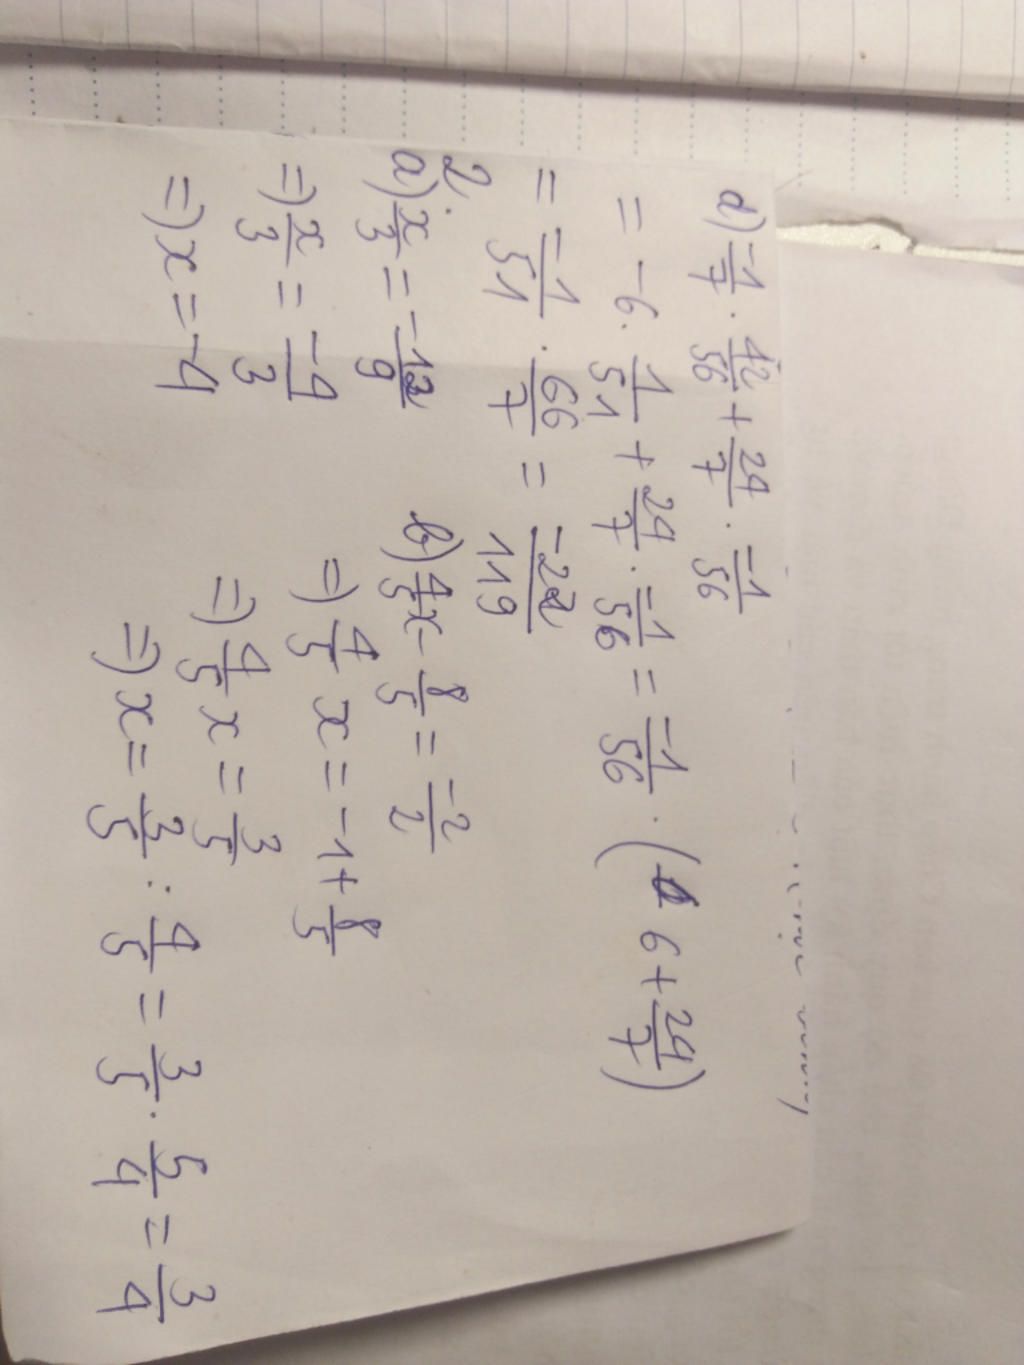 d) \frac{-1}{7} . \frac{42}{56} + \frac{24}{7} . \frac{-1}{56}
= -6 . \frac{1}{51} + \frac{24}{7} . \frac{-1}{56} = \frac{-1}{56} . ( 6 + \frac{24}{7} )
= \frac{-1}{51} . \frac{66}{7} = \frac{-22}{119}
2.
a) \frac{x}{3} = \frac{-12}{9}
=> \frac{x}{3} = \frac{-4}{3}
=> x = -4
b) \frac{4}{5} x - \frac{8}{5} = \frac{-2}{2}
=> \frac{4}{5} x = -1 + \frac{8}{5}
=> \frac{4}{5} x = \frac{3}{5}
=> x = \frac{3}{5} : \frac{4}{5} = \frac{3}{5} . \frac{5}{4} = \frac{3}{4}